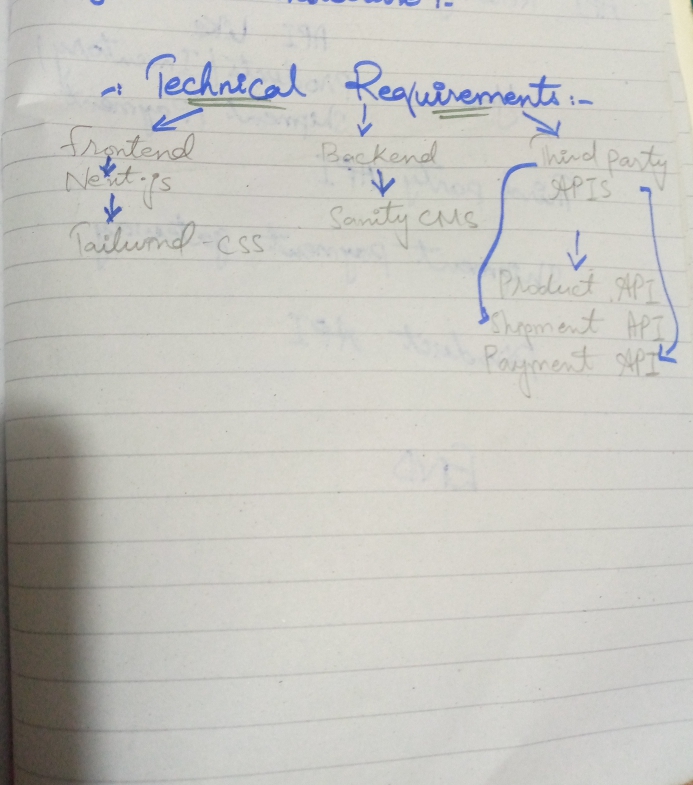 -: Technical Requirements:-
Frontend
Next.js
Tailwind-css
Backend
Sanity CMS
Third party
APIS
Product API
Shipment API
Payment API